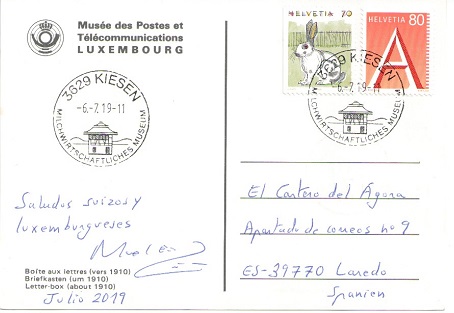 Musée des Postes et
Télécommunications
LUXEMBOURG
HELVETIA 70
HELVETIA 80
A
3629 KIESEN
-6.-7.19-11
MILCHWIRTSCHAFTLICHES MUSEUM
3629 KIESEN
-6.-7.19-11
MILCHWIRTSCHAFTLICHES MUSEUM
Saludos suizos y
luxemburgueses
Boîte aux lettres (vers 1910)
Briefkasten (um 1910)
Letter-box (about 1910)
Julio 2019
El Cartero del Ágora
Apartado de correos nº 9
ES-39770 Laredo
Spanien